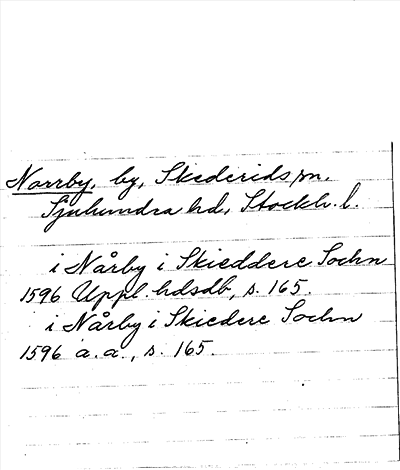 Norrby, by, Skederids sn.
Sjuhundra hd, Stockh. l.
i Nårby i Skieddere Sochn
1596 Uppl. hdsdb, s. 165.
i Nårby i Skiedere Sochn
1596 a.a., s. 165.